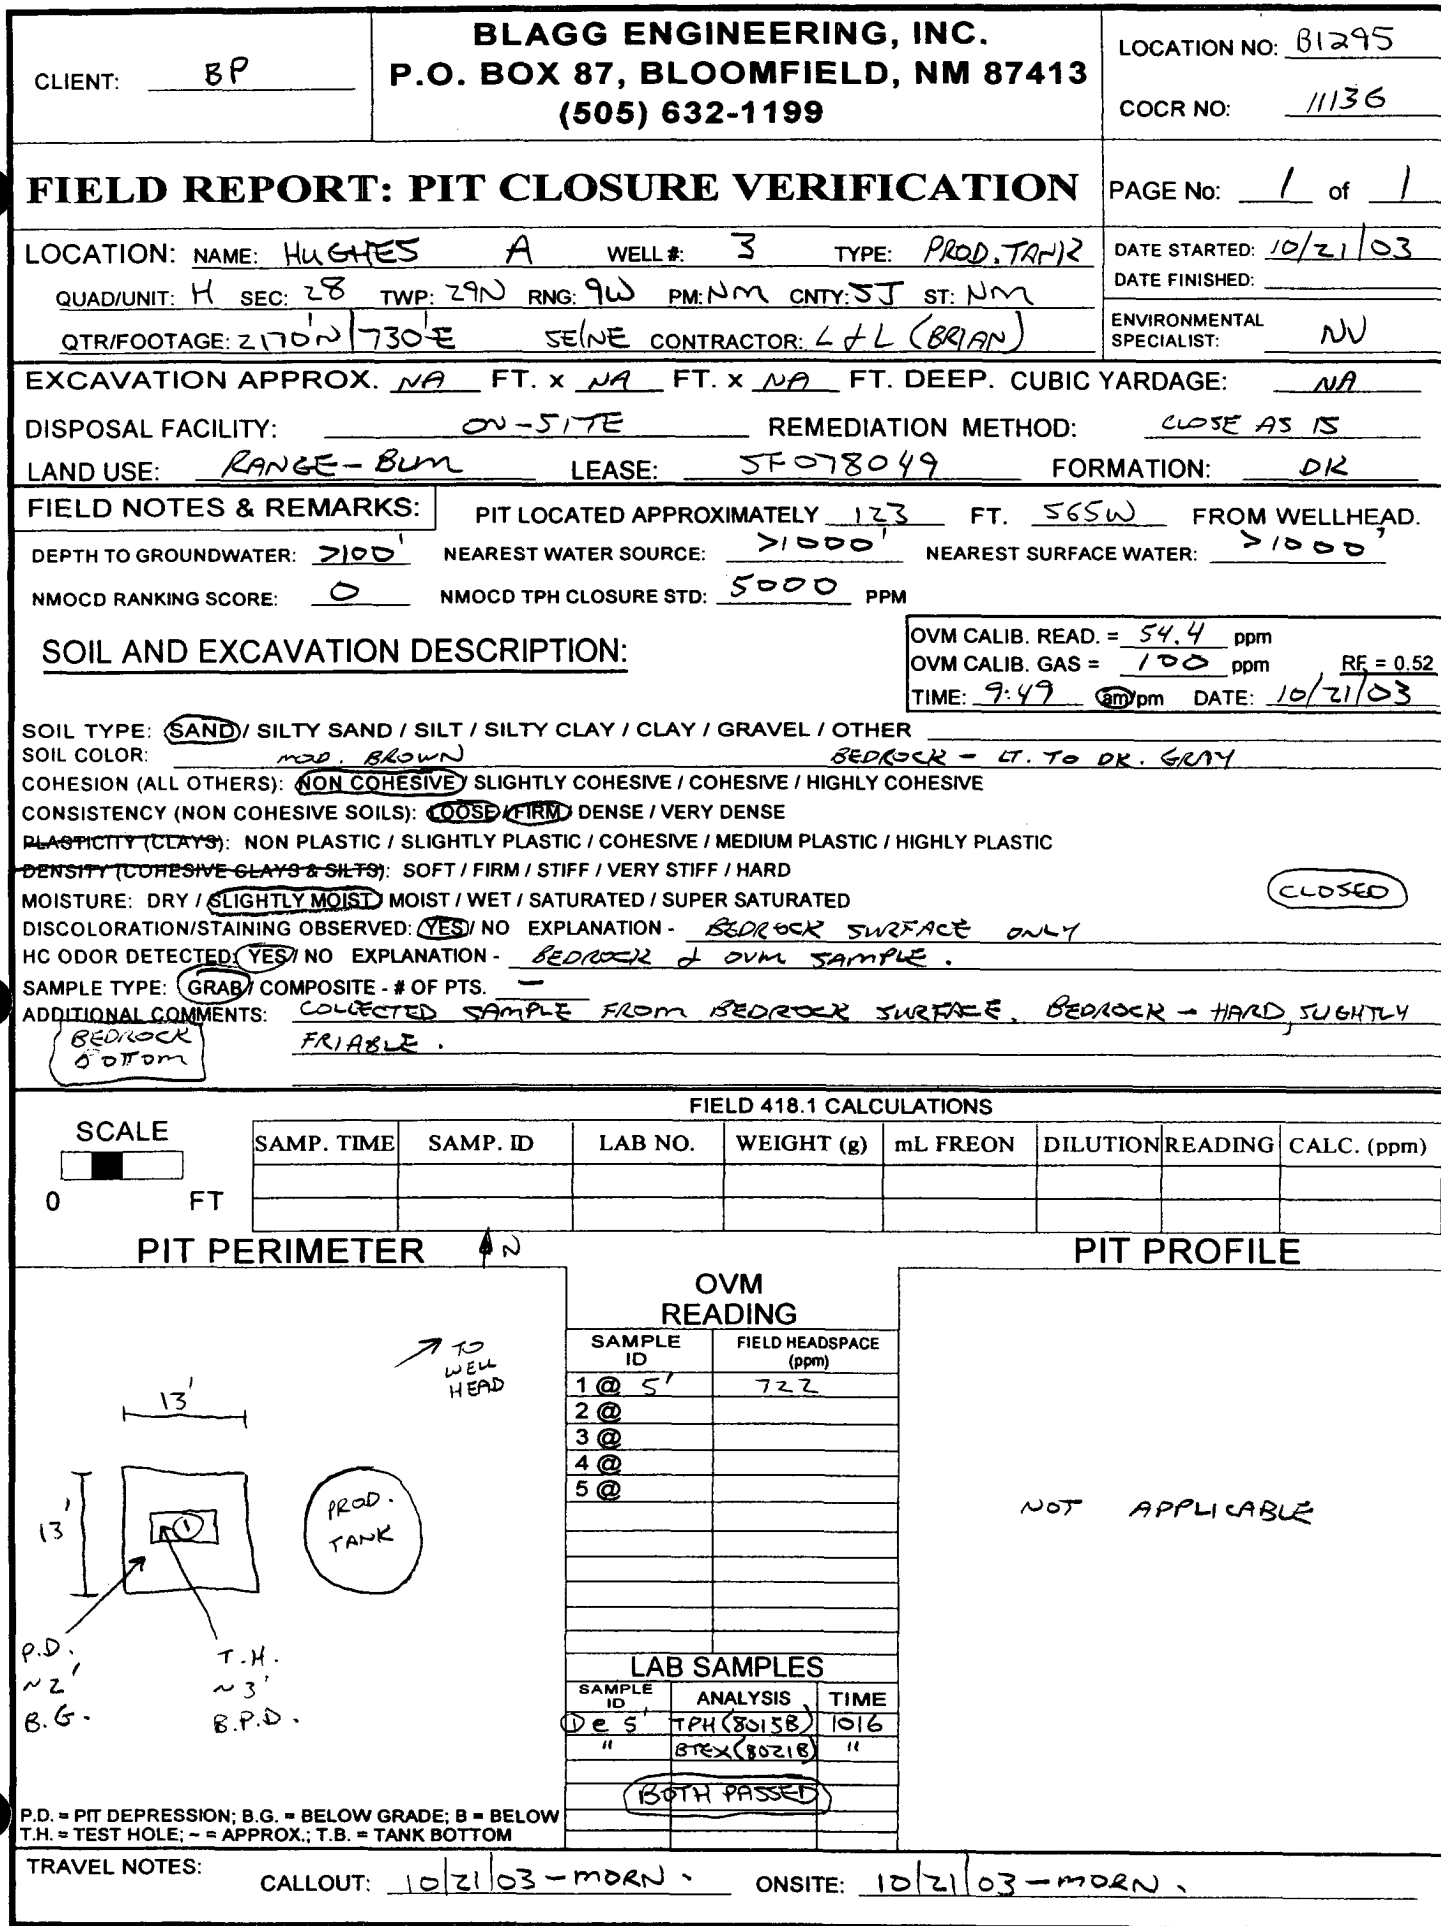 CLIENT: BP
BLAGG ENGINEERING, INC.
P.O. BOX 87, BLOOMFIELD, NM 87413
(505) 632-1199
LOCATION NO: B1295
COCR NO: 11136
FIELD REPORT: PIT CLOSURE VERIFICATION
PAGE No: 1 of 1
LOCATION: NAME: HUGHES A WELL #: 3 TYPE: PROD. TANK
QUAD/UNIT: H SEC: 28 TWP: 29N RNG: 9W PM: NM CNTY: SJ ST: NM
QTR/FOOTAGE: 2170'N/730'E SE/NE CONTRACTOR: L & L (BRIAN)
DATE STARTED: 10/21/03
DATE FINISHED:
ENVIRONMENTAL
SPECIALIST: NV
EXCAVATION APPROX. NA FT. x NA FT. x NA FT. DEEP. CUBIC YARDAGE: NA
DISPOSAL FACILITY: ON-SITE REMEDIATION METHOD: CLOSE AS IS
LAND USE: RANGE - BLM LEASE: SF078049 FORMATION: DK
FIELD NOTES & REMARKS: PIT LOCATED APPROXIMATELY 123 FT. S65W FROM WELLHEAD.
DEPTH TO GROUNDWATER: >100' NEAREST WATER SOURCE: >1000' NEAREST SURFACE WATER: >1000'
NMOCD RANKING SCORE: 0 NMOCD TPH CLOSURE STD: 5000 PPM
SOIL AND EXCAVATION DESCRIPTION:
OVM CALIB. READ. = 54.4 ppm
OVM CALIB. GAS = 100 ppm RF = 0.52
TIME: 9:49 am/pm DATE: 10/21/03
SOIL TYPE: SAND / SILTY SAND / SILT / SILTY CLAY / CLAY / GRAVEL / OTHER
SOIL COLOR: MOD. BROWN BEDROCK - LT. TO DK. GRAY
COHESION (ALL OTHERS): NON COHESIVE / SLIGHTLY COHESIVE / COHESIVE / HIGHLY COHESIVE
CONSISTENCY (NON COHESIVE SOILS): LOOSE / FIRM / DENSE / VERY DENSE
PLASTICITY (CLAYS): NON PLASTIC / SLIGHTLY PLASTIC / COHESIVE / MEDIUM PLASTIC / HIGHLY PLASTIC
DENSITY (COHESIVE CLAYS & SILTS): SOFT / FIRM / STIFF / VERY STIFF / HARD
MOISTURE: DRY / SLIGHTLY MOIST / MOIST / WET / SATURATED / SUPER SATURATED
CLOSED
DISCOLORATION/STAINING OBSERVED: YES / NO EXPLANATION - BEDROCK SURFACE ONLY
HC ODOR DETECTED: YES / NO EXPLANATION - BEDROCK & OVM SAMPLE.
SAMPLE TYPE: GRAB / COMPOSITE - # OF PTS. -
ADDITIONAL COMMENTS: COLLECTED SAMPLE FROM BEDROCK SURFACE. BEDROCK - HARD, SLIGHTLY
FRIABLE.
BEDROCK
BOTTOM
FIELD 418.1 CALCULATIONS
SCALE
0 FT
SAMP. TIME SAMP. ID LAB NO. WEIGHT (g) mL FREON DILUTION READING CALC. (ppm)
PIT PERIMETER N
PIT PROFILE
TO
WELL
HEAD
13'
13'
1
PROD.
TANK
P.D.
~2'
B.G.
T.H.
~3'
B.P.D.
P.D. = PIT DEPRESSION; B.G. = BELOW GRADE; B = BELOW
T.H. = TEST HOLE; ~ = APPROX.; T.B. = TANK BOTTOM
OVM
READING
SAMPLE ID FIELD HEADSPACE (ppm)
1 @ 5' 722
2 @
3 @
4 @
5 @
LAB SAMPLES
SAMPLE ID ANALYSIS TIME
① @ 5' TPH (8015B) 1016
" BTEX (8021B) "
BOTH PASSED
NOT APPLICABLE
TRAVEL NOTES: CALLOUT: 10/21/03 - MORN. ONSITE: 10/21/03 - MORN.